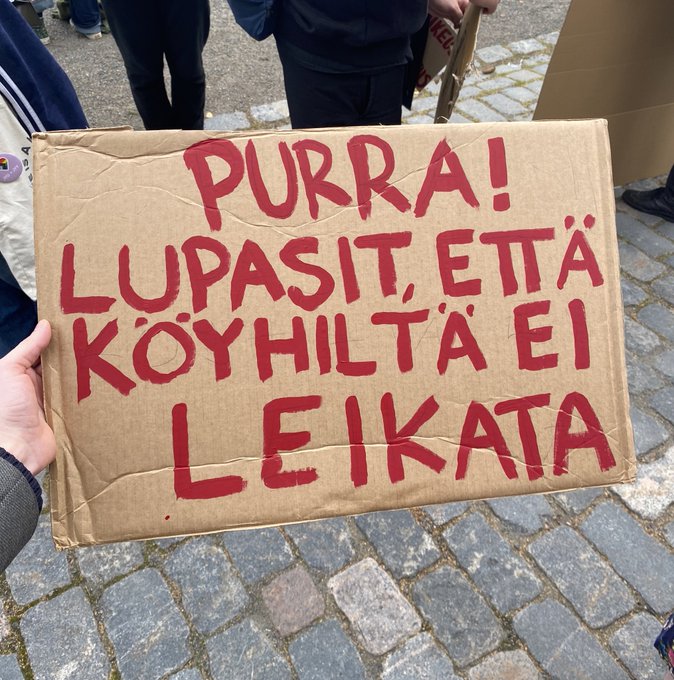 PURRA!
LUPASIT, ETTÄ
KÖYHILTÄ EI
LEIKATA